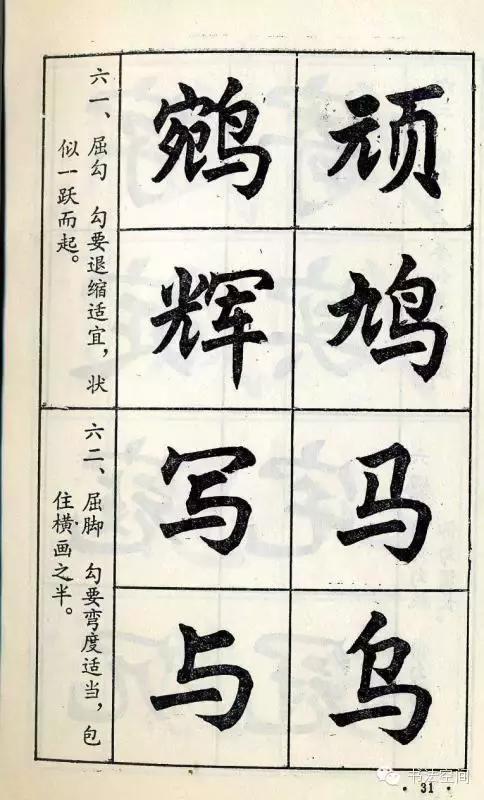 顽鸠
鹓辉
六一、屈勾 勾要退缩适宜，状
似一跃而起。
马乌
写与
六二、屈脚 勾要弯度适当，包
住横画之半。
书法空间
·31·